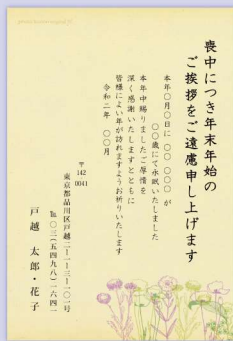 喪中につき年末年始の
ご挨拶をご遠慮申し上げます
本年〇月〇日に 〇〇 〇〇〇 が
〇〇歳にて永眠いたしました
本年中賜りましたご厚情を
深く感謝いたしますとともに
皆様によい年が訪れますようお祈りいたします
令和二年 〇〇月
〒
142
0041
東京都品川区戸越二-一-三-一〇一号
℡〇三(五四九八)一六四一
戸越 太郎・花子